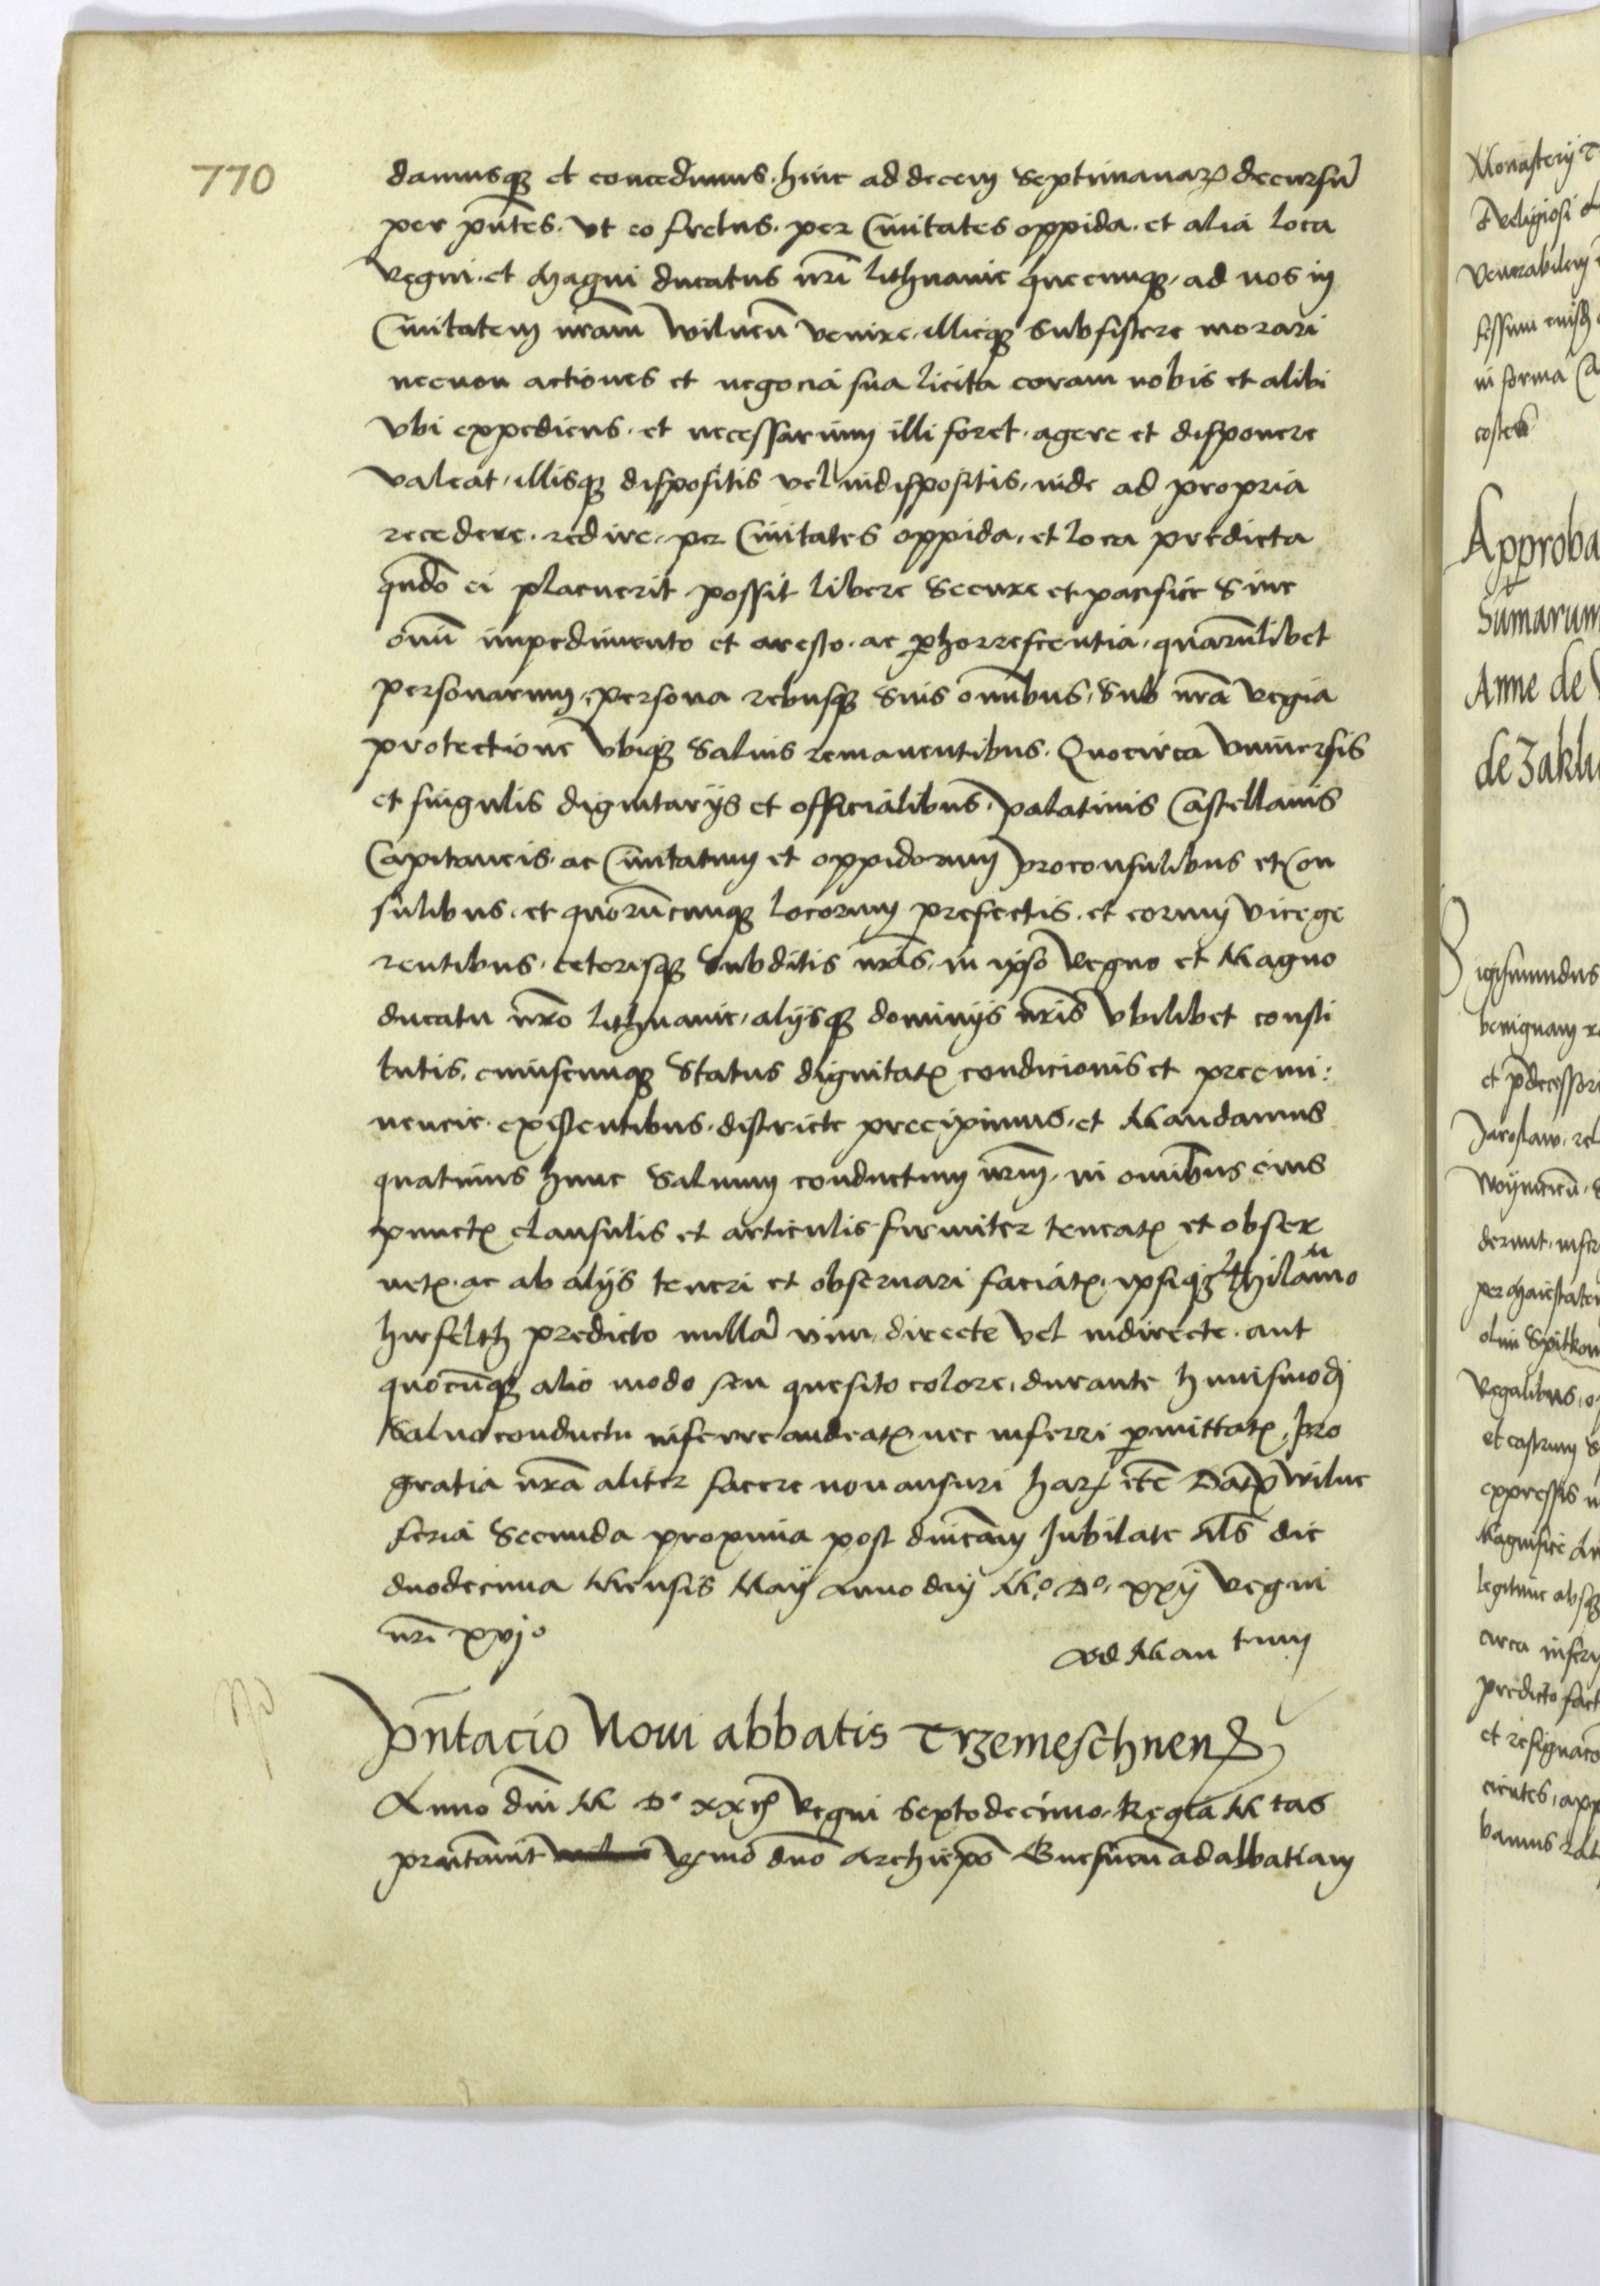 770
damusq3 et concedimus. hinc ad decem Septimanarꝝ decursū
per pn̄tes. Vt eo fretus. per Ciuitates oppida. et alia loca
Regni. et Magni ducatus nr̄i Lithuanie quecunq3. ad nos in
Ciuitatem nr̄am Wilnen̄ venire. illicq3 Subsistere morari
necnon actiones et negocia sua licita coram nobis et alibi
Vbi expediens. et necessarium illi foret. agere et disponere
valeat. illisq3 dispositis vel indispositis. inde ad propria
recedere. redire. per Ciuitates oppida. et loca predicta
qn̄do ei placuerit possit libere Secure et pacifice Sine
omī impedimento et aresto. ac ꝑhorrescentia. quarūlibet
personarum. persona rebusq3 Suis omībus. Sub nr̄a Regia
protectione Vbiq3 Saluis remanentibus. Quocirca Vniuersis
et singulis dignitarijs et officialibus. palatinis Castellanis
Capitaneis. ac Ciuitatum et oppidorum proconsulibus et Con
sulibus. et quorūcunq3 locorum prefectis. et eorum Vicege
rentibus. ceterisq3 Subditis nr̄is. in ipso Regno et Magno
ducatu nr̄o Lithuanie. alijsq3 dominijs nr̄is Vbilibet consti
tutis. cuiuscunq3 Status dignitatꝭ condicionis et preemi:
nencie. existentibus. districte precipimus. et Mandamus
quatinus hunc Saluum conductum nr̄m. in omībus eius
punctꝭ clausulis et articulis firmiter teneatꝭ et obser
uetꝭ. ac ab alijs teneri et obseruari faciatꝭ. ipsiq3 Thilmano
hirsfelth predicto nullā vim. directe vel indirecte. aut
quocūq3 alio modo seu quesito colore. durante huiusmodi
Saluo conductu inferre audeatꝭ. nec inferri ꝑmittatꝭ. pro
gratia nr̄a aliter facere non ausuri harꝝ etc̄ Datꝭ Wilne
feria Secunda proxima post dn̄icam Jubilate als̄ die
duodecima Mensis Maij Anno dn̄i M.º Dº. xxij Regni
nr̄i xvjº
Ad Man tuum
Pn̄tacio Noui abbatis Trzemeschnen̄
Anno dn̄i M Dº xxijº Regni Septodecimo. Regia M tas
pn̄tauit Rmo dn̄o Archiepō Gnesnen̄ ad abbatiam
Monasterij T
Religiosi
venerabilem
fessum eiusd
in forma Ca
coster
Approba
Sumarum
Anne de
de Zaklu
Sigismundus
benignam
et p̄decessor
Jaroslaw. rel
Woynicen̄.
derunt. infer
per Maiestatem
olim Spitkon
Regalibus.
et castrum
expressis
Magnifice An
legitime absq3
circa inser
predicto fact
et resignaco
cientes. app
bamus rat